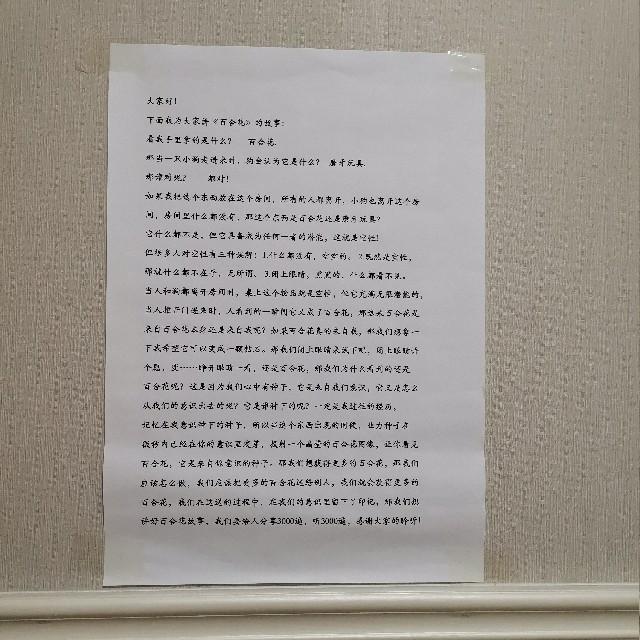 大家好！
下面我为大家讲《百合花》的故事：
看我手里拿的是什么？ 百合花.
那当一只小狗走进来时，狗会认为它是什么？ 磨牙玩具.
那谁对呢？ 都对！
如果我把这个东西放在这个房间，所有的人都离开，小狗也离开这个房
间，房间里什么都没有，那这个东西是百合花还是磨牙玩具？
它什么都不是，但它具备成为任何一者的潜能，这就是空性！
但很多人对空性有三种误解：1.什么都没有，空空的、2.既然是空性，
那就什么都不在乎，无所谓、3.闭上眼睛，黑黑的、什么都看不见。
当人和狗都离开房间时，桌上这个物品就是空性，他它充满无限潜能的，
当人推开门进来时，人看到的一瞬间它又成了百合花，那想来百合花是
来自百合花本身还是来自我呢？如果百合花真的来自我，那我们想象一
下我希望它可以变成一颗钻石。那我们闭上眼睛来试下呢，闭上眼睛许
个愿，变……睁开眼睛一看，还是百合花，那我们为什么看到的还是
百合花呢？这是因为我们心中有种子、它是来自我们意识，它又是怎么
从我们的意识出去的呢？它是谁种下的呢？一定是我过往的经历，
记忆在我意识种下的种子，所以当这个东西出现的时候，业力种子在
微秒内已经在你的意识里发芽，投射一个画量的百合花图像，让你看见
百合花，它是来自你意识的种子。那我们想获得更多的百合花，那我们
应该怎么做，我们应该把更多的百合花送给别人，我们就会获得更多的
百合花，我们在送送的过程中，在我们的意识里留下了印记，那我们想
讲好百合花故事、我们要给人分享3000遍，听3000遍，感谢大家的聆听！